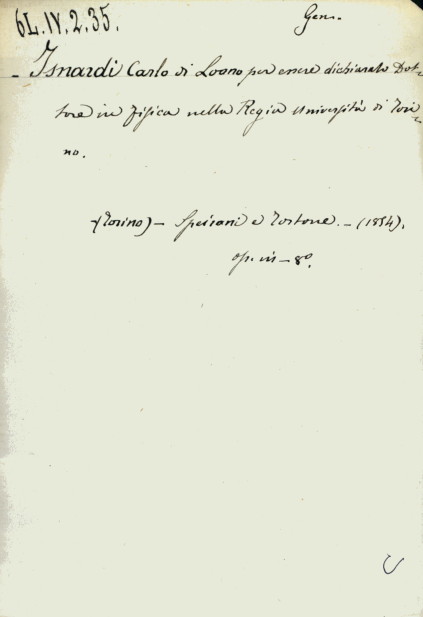 6L.IV.2.35.
Gen.
- Isnardi Carlo di Loano per essere dichiarato Dot-
tore in Fisica nella Regia Università di Tori-
no.
(Torino) - Speirani e Tortone. - (1854).
op. in - 8º.